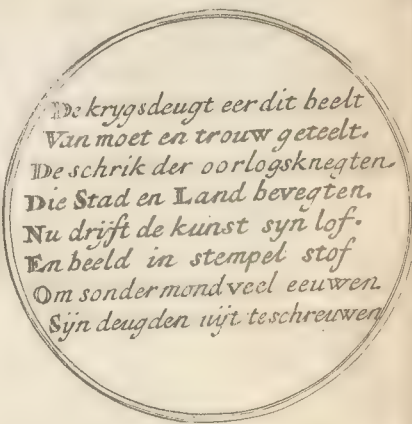 De krygsdeugt eer dit beelt
Van moet en trouw geteelt.
De schrik der oorlogsknegten.
Die Stad en Land bevegten.
Nu drijft de kunst syn lof.
En beeld in stempel stof
Om sonder mond veel eeuwen.
Sÿn deugden uijt te schreuwen